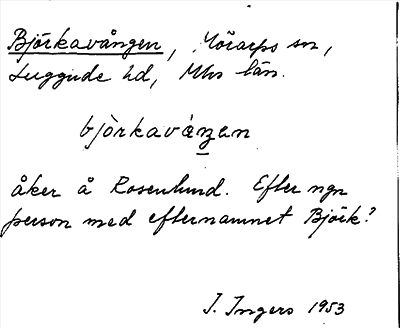 Björkavången, Mörarps sn,
Luggude hd, Mhs län.
bjòrkaváŋan
åker å Rosenlund. Efter ngn
person med efternamnet Björk?
I. Ingers 1953